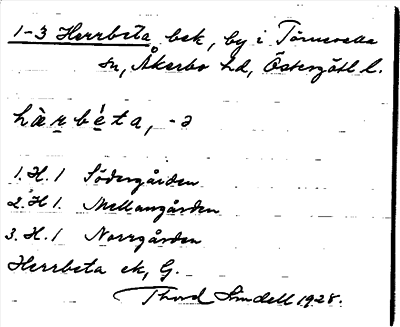 1-3 Herrbeta bek, by i Törnevalla
sn, Åkerbo hd, Östergötl l.
hä̀rbé̀ta, -ə
1. H. 1 Södergården
2. H 1. Mellangården
3. H. 1 Norrgården
Herrbeta ek, G.
Thord Lindell 1928.